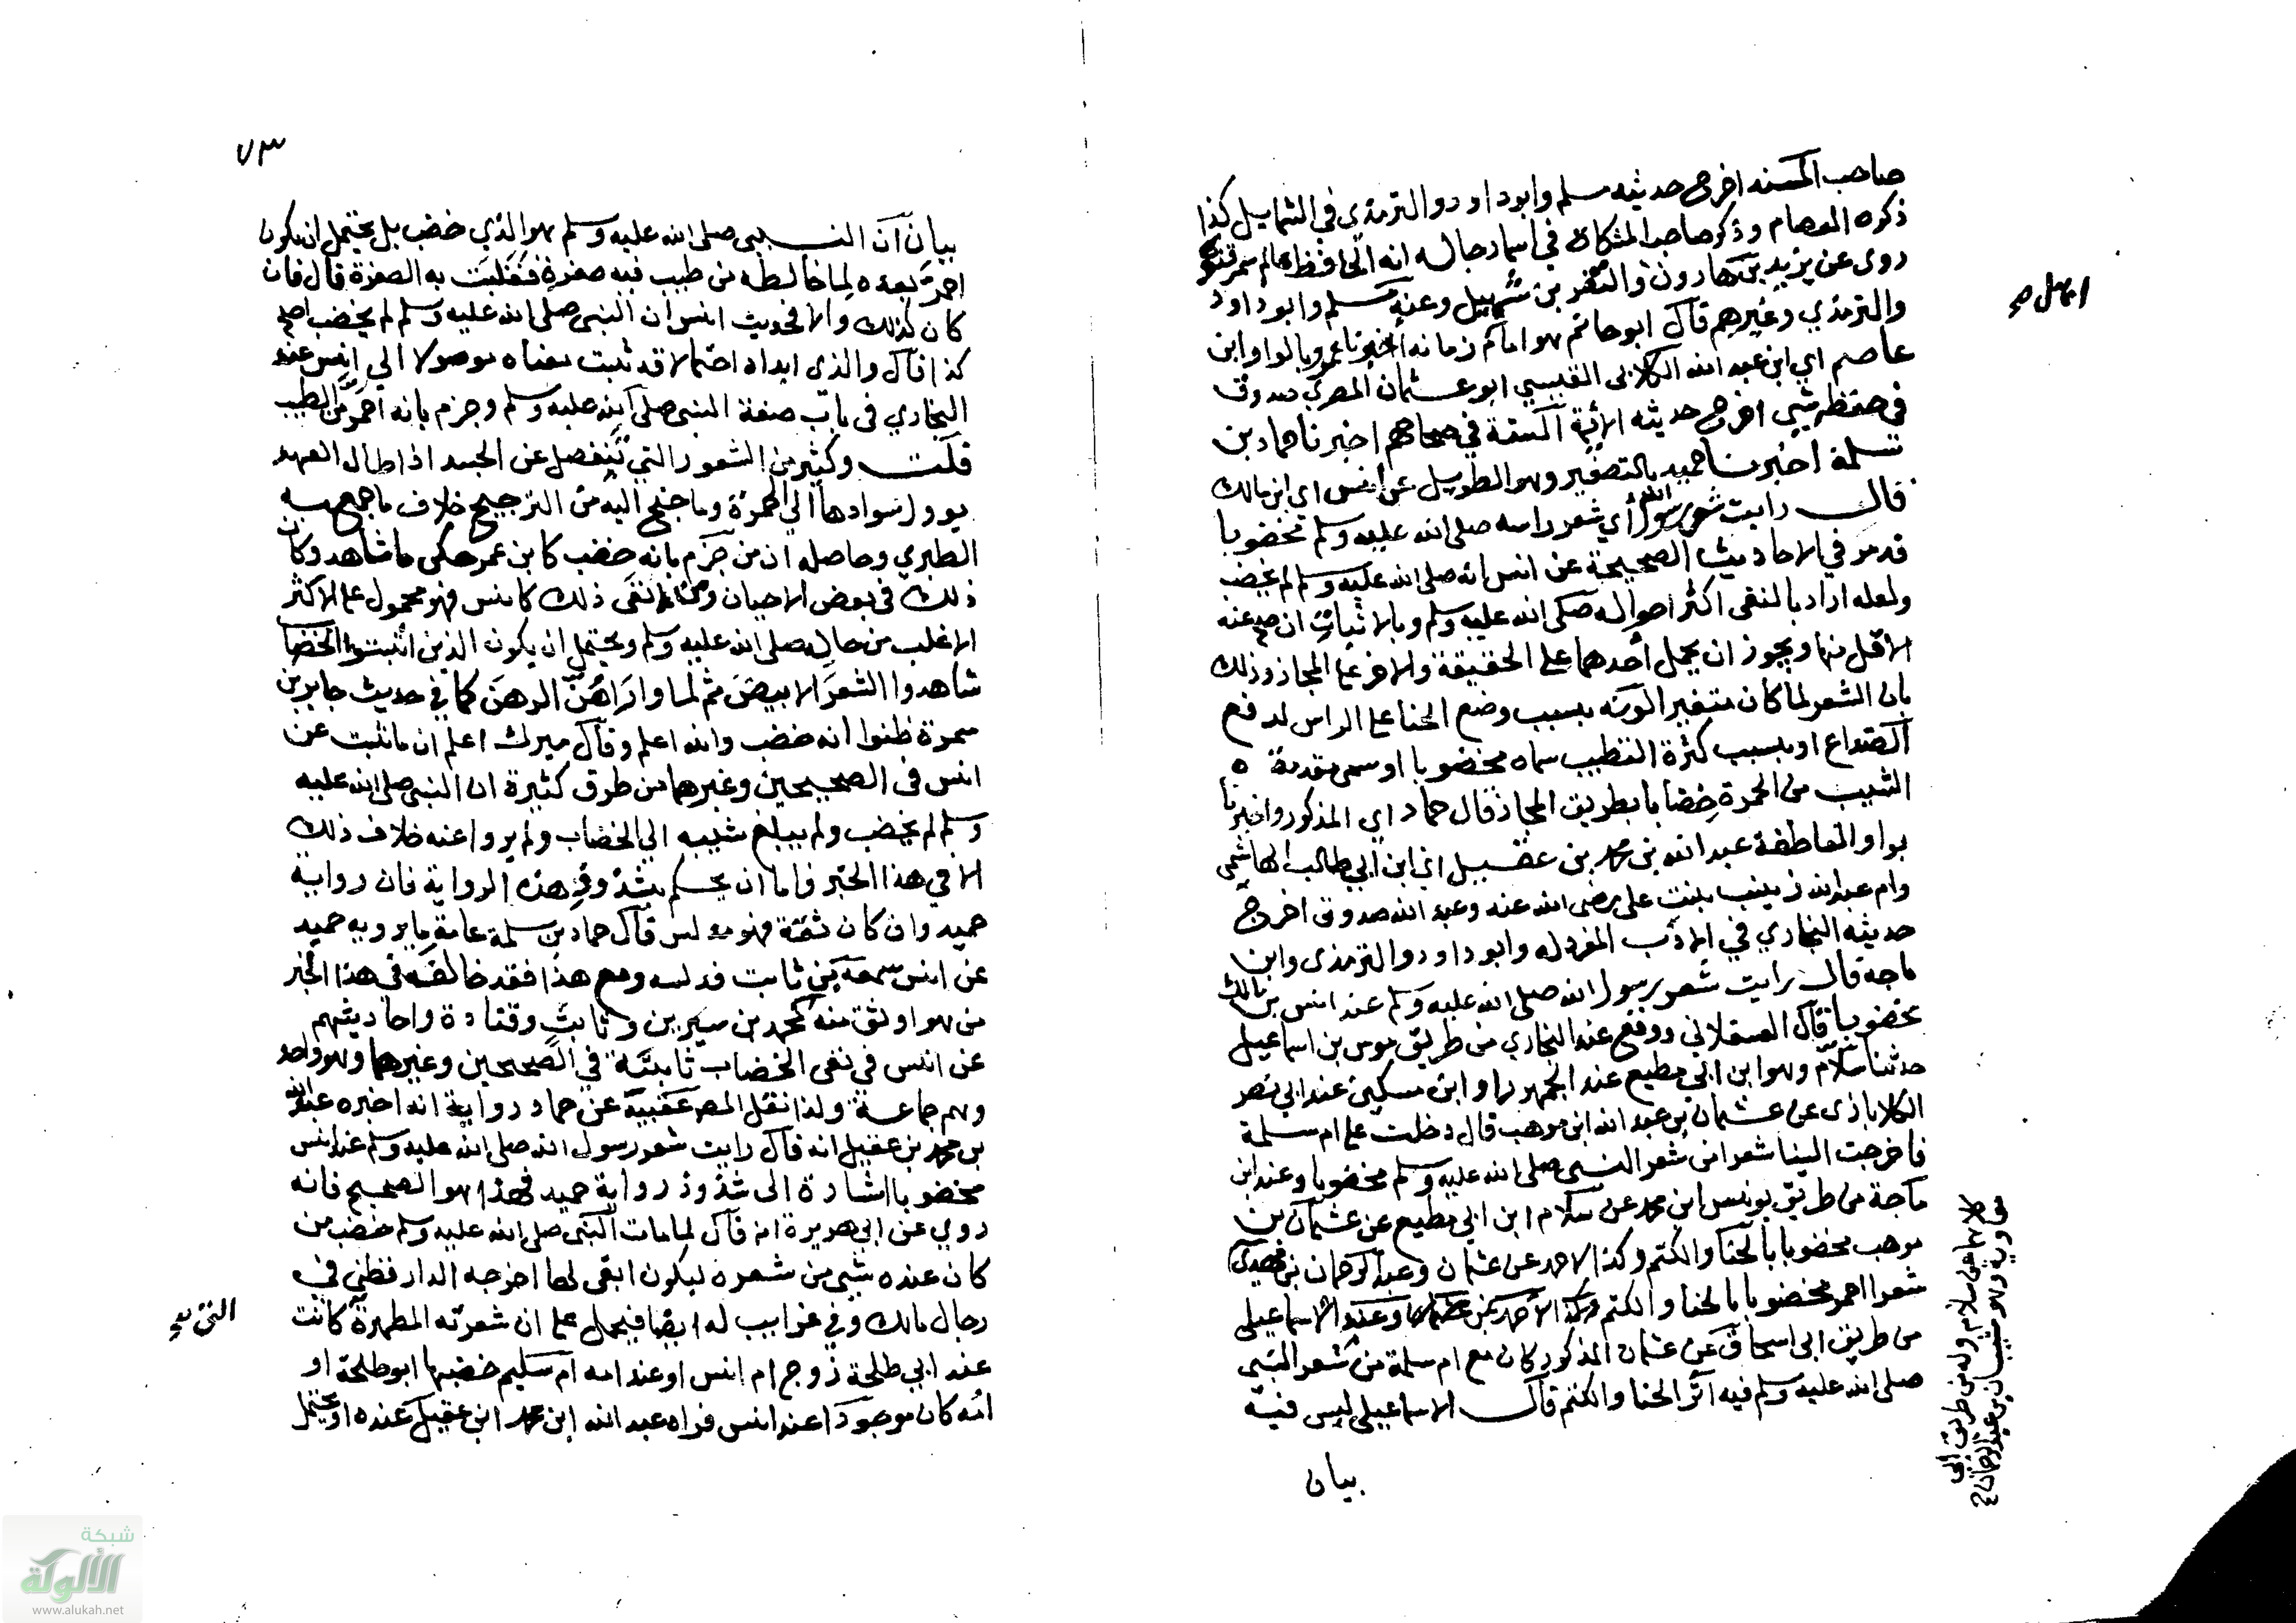 صاحب المسند اخرج حديثه مسلم وابوداود والترمذي في الشمايل كذا
ذكره العصام وذكر صاحب المشكاة في اسماء رجاله انه الحافظ عالم سمرقند
روى عن يزيد بن هارون والنضر بن شميل وعنه مسلم وابوداود
والترمذي وغيرهم قال ابوحاتم هو امام زمانه اخبرنا عمرو بالواو ابن
عاصم اي ابن عبد الله الكلابي القيسي ابوعثمان المصري صدوق
في حفظه شيء اخرج حديثه الأئمة الستة في صحاحهم اخبرنا حماد بن
سلمة اخبرنا حميد بالتصغير وهو الطويل عن انس اي ابن مالك
قال رايت شعر رسول الله اي شعر راسه صلى الله عليه وسلم مخضوبا
قد مر في الاحاديث الصحيحة عن انس انه صلى الله عليه وسلم لم يخضب
ولعله اراد بالنفي اكثر احواله صلى الله عليه وسلم وبالاثبات ان صح عنه
الاقل منها ويجوز ان يحمل أحدهما على الحقيقة والاخر على المجاز وذلك
بان الشعر لما كان متغير الونه بسبب وضع الحنا على الراس لدفع
الصداع او بسبب كثرة التطيب سماه مخضوبا او سمى مقدمة
الشيب من الحمرة خضابا بطريق المجاز قال حماد اي المذكور واخبرنا
بواو العاطفة عبد الله بن محمد بن عقيل اي ابن ابي طالب الهاشمي
وام عبدالله زينب بنت علي رضى الله عنه وعبد الله صدوق اخرج
حديثه البخاري في الأدب المفرد له وابوداود والترمذى وابن
ماجه قال رايت شعر رسول الله صلى الله عليه وسلم عند انس بن مالك
مخضوبا قال العسقلاني ووقع عند البخاري من طريق موسى بن اسماعيل
حدثنا سلام وهو ابن ابي مطيع عند الجمهور او ابن مسكين عند ابي نصر
الكلاباذى عن عثمان بن عبد الله ابن موهب قال دخلت على ام سلمة
فاخرجت الينا شعرا من شعر النبى صلى الله عليه وسلم مخضوبا وعند ابن
ماجة من طريق يونس ابن محمد عن سلام ابن ابي مطيع عن عثمان بن
موهب مخضوبا بالحنا والكتم وكذا لاحمد عن عثمان وعبد الرحمان بن مهدي
شعرا احمر مخضوبا بالحنا والكتم وعند الاسماعيلي
من طريق ابى اسحاق عن عثمان المذكور كان مع ام سلمة من شعر النبى
صلى الله عليه وسلم فيه أثر الحنا والكتم قال الاسماعيلي ليس فيه
بيان
كلاهما عن سلام وله من طريق أبي
معاوية وهو شيبان بن عبد الرحمان
٧٣
بيان أن النبى صلى الله عليه وسلم هو الذي خضب بل يحتمل ان يكون
احمر بعده لما خالطه من طيب فيه صفرة فغلبت به الصفرة قال فان
كان كذلك والا فحديث انس ان النبى صلى الله عليه وسلم لم يخضب اصح
كذا قال والذى ابداه احتمالا قد ثبت معناه موصولا الى انس عند
البخاري في باب صفة النبى صلى الله عليه وسلم وجزم بانه احمر من الطيب
قلت وكثير من الشعور التي تنفصل عن الجسد اذا طال العهد
يوول سوادها الى الحمرة وما جنح اليه من الترجيح خلاف ما جمع به
الطبري وحاصله ان من جزم بانه خضب كابن عمر حكى ما شاهد وكان
ذلك في بعض الاحيان ومن نفى ذلك كانس فهو محمول على الاكثر
الاغلب من حاله صلى الله عليه وسلم ويحتمل ان يكون الذين اثبتوا الخضاب
شاهدوا الشعر الابيض ثم لما واراهن الدهن كما في حديث جابر بن
سمرة ظنوا انه خضب والله اعلم وقال ميرك اعلم ان ما ثبت عن
انس في الصحيحين وغيرهما من طرق كثيرة ان النبى صلى الله عليه
وسلم لم يخضب ولم يبلغ شيبه الى الخضاب ولم يروا عنه خلاف ذلك
الا في هذا الخبر فاما ان يحكم بشذوذ هذه الرواية فان رواية
حميد وان كان ثقة فهو مدلس قال حماد بن سلمة عامة ما يرويه حميد
عن انس سمعه من ثابت فدلسه ومع هذا فقد خالفه في هذا الخبر
من هو اوثق منه كمحمد بن سيرين وثابت وقتادة واحاديثهم
عن انس في نفى الخضاب ثابتة في الصحيحين وغيرهما وهو واحد
وهم جماعة ولذا نقل المص عقبيه عن حماد رواية انه اخبره عبد الله
بن محمد بن عقيل انه قال رايت شعر رسول الله صلى الله عليه وسلم عند انس
مخضوبا اشارة الى شذوذ رواية حميد فهذا هو الصحيح فانه
روي عن ابي هريرة انه قال لما مات النبى صلى الله عليه وسلم خضب من
كان عنده شي من شعره ليكون ابقى لها اخرجه الدارقطني في
رجال مالك وفي غرايب له ايضا فيحمل على ان شعرته المطهرة كانت
عند ابي طلحة زوج ام انس او عند امه ام سليم خضبها ابوطلحة او
انه كان موجودا عند انس فراه عبد الله ابن محمد ابن عقيل عنده او يحتمل
شبكة
الألوكة
www.alukah.net